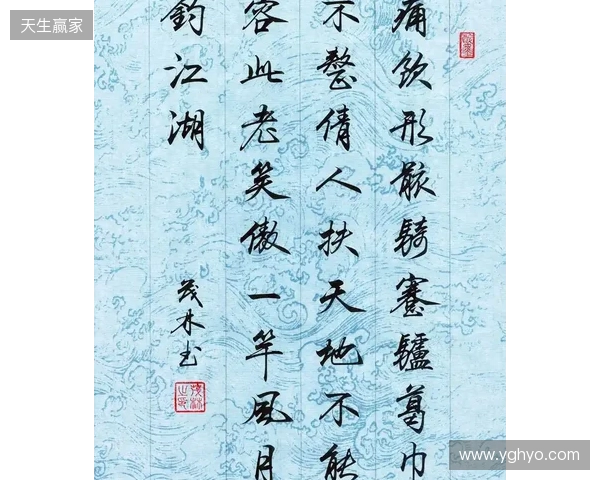 天生赢家
痛飲形骸騎蹇驢葛巾
不整倩人扶天地不能
容此老笑傲一竿風月
釣江湖
茂林书
www.yghyo.com